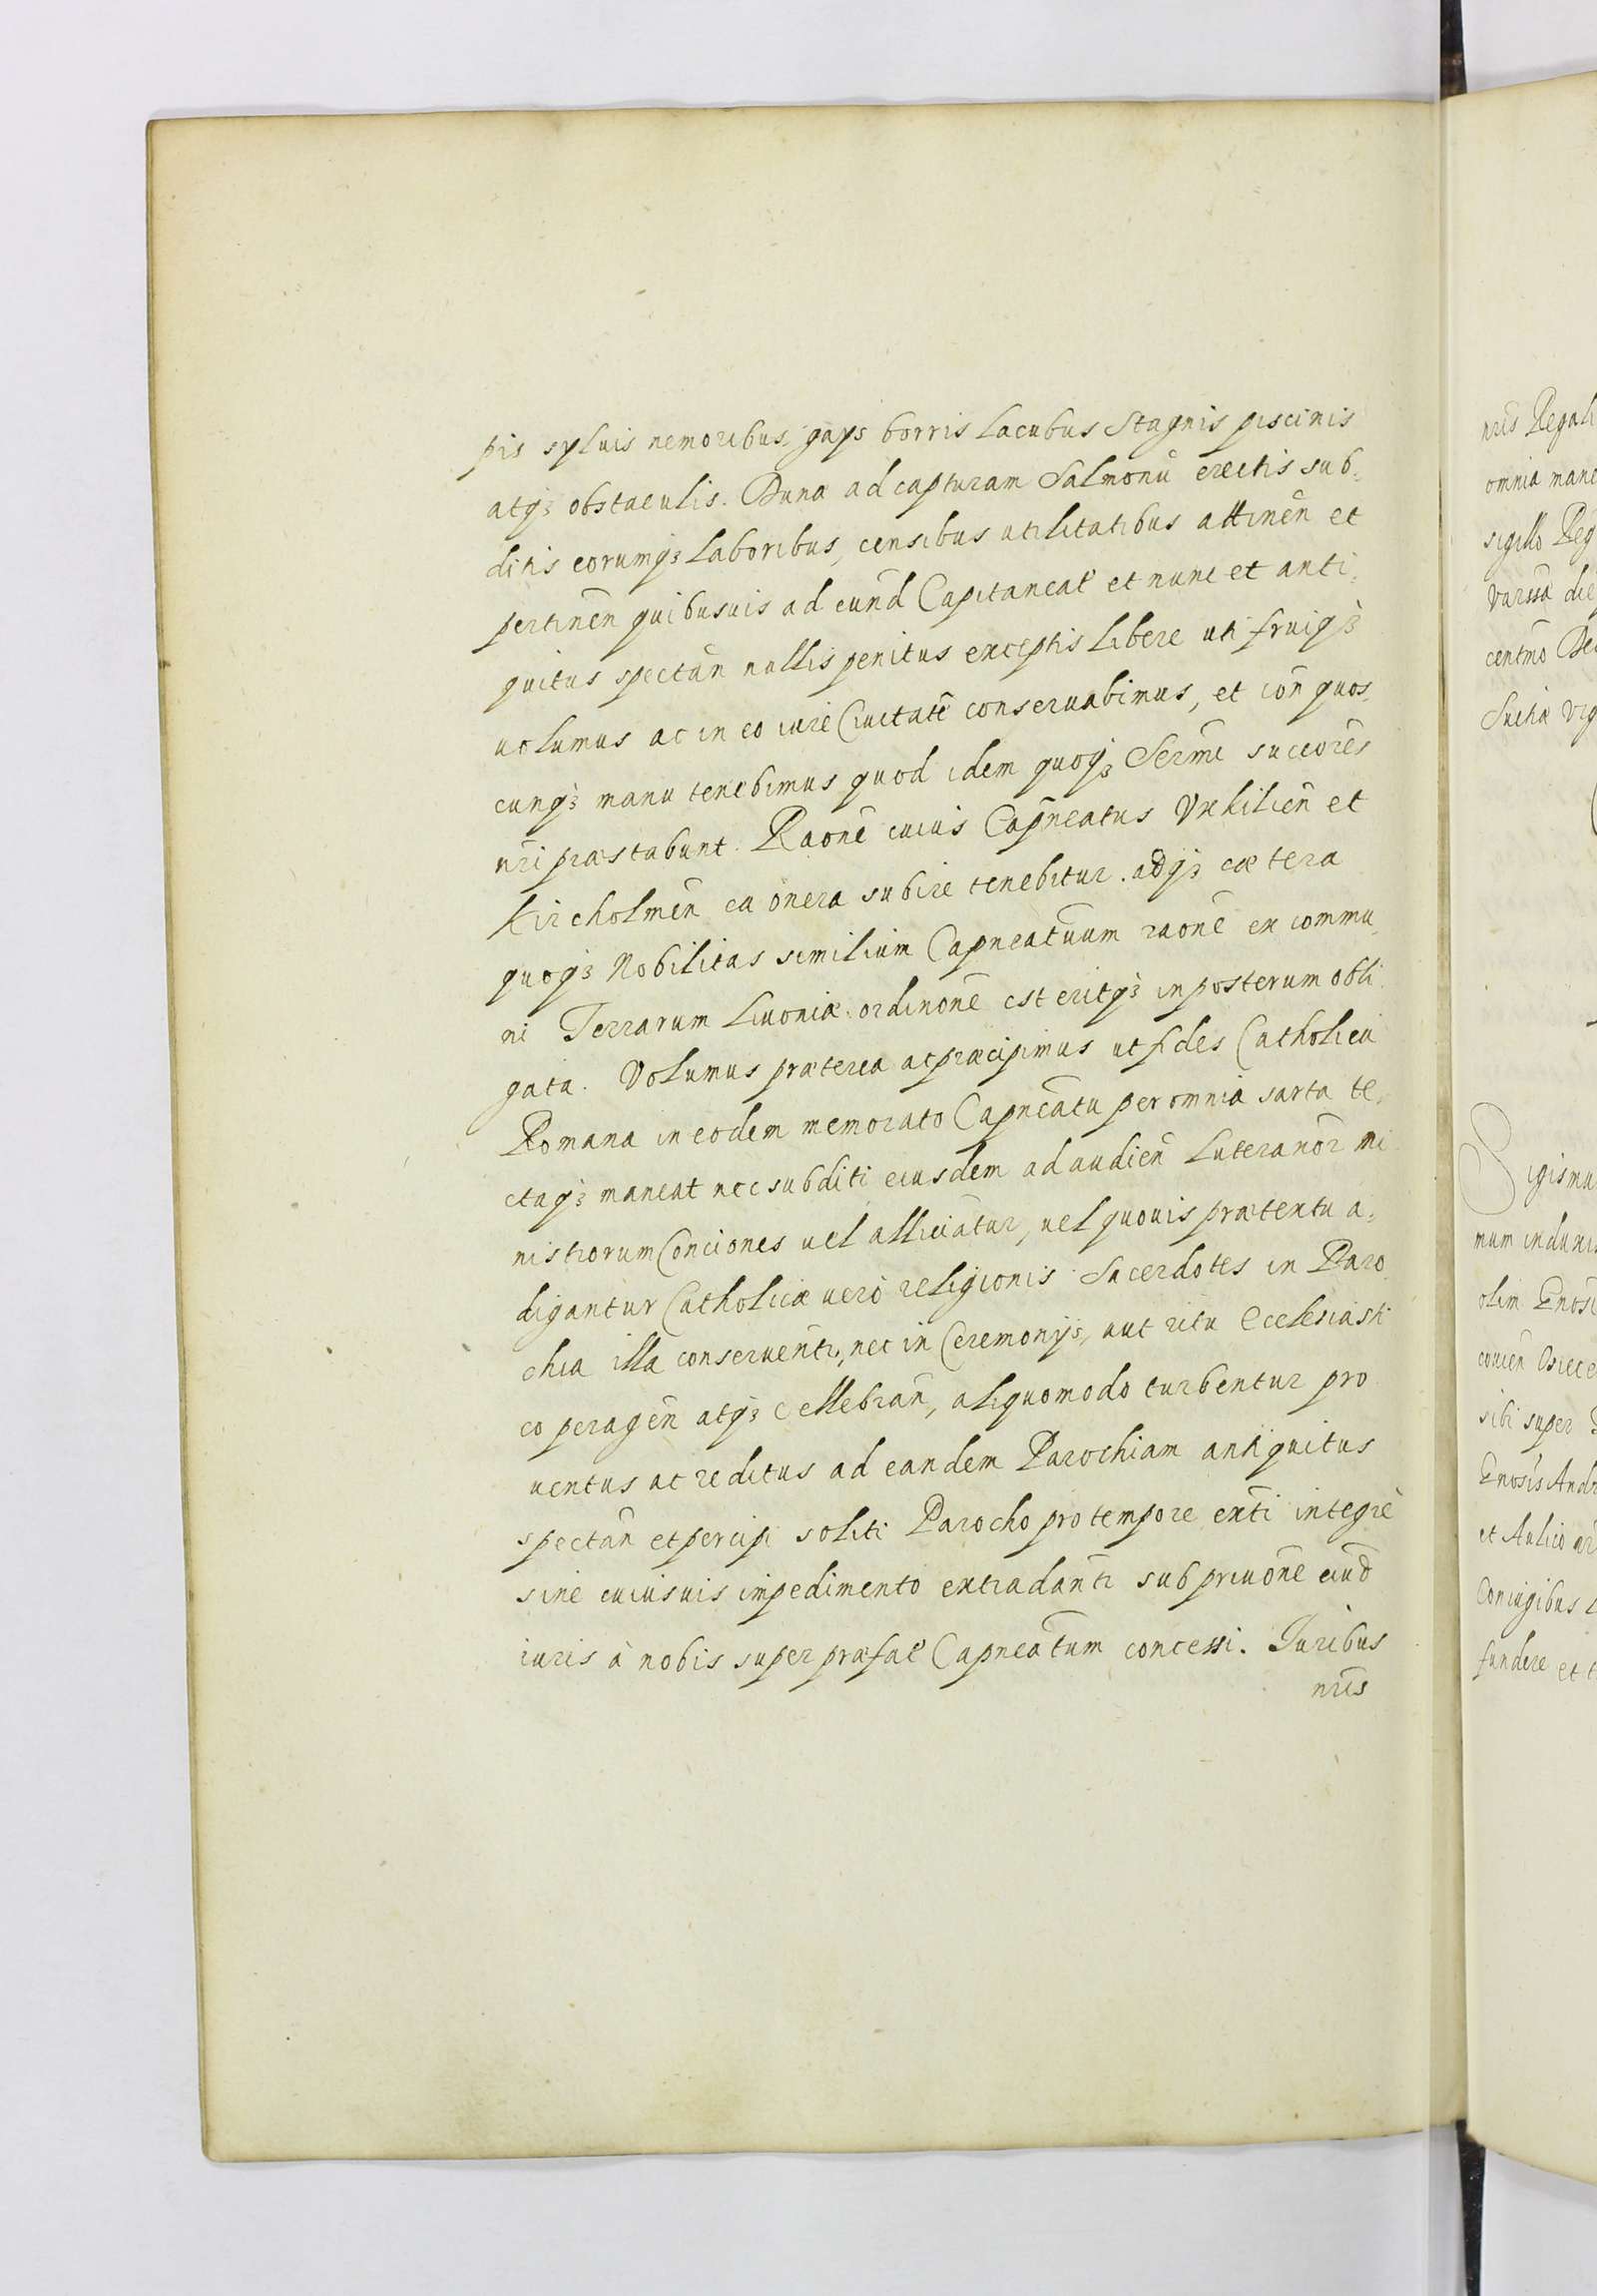 pis sylvis nemoribus, gays borris Lacubus Stagnis piscinis
atqꝫ obstaculis. Duna ad capturam Salmonū erectis sub-
ditis eorumqꝫ Laboribus, censibus utilitatibus attinen̄ et
pertinen̄ quibusuis ad eund̄ Capitaneat̄ et nunc et anti-
quitus spectan̄ nullis penitus exceptis Libere uti fruiqꝫ
uolumus ac in eo iure Ciuitatē conseruabimus, et con̄ quos-
cunqꝫ manu tenebimus quod idem quoqꝫ Sermi succores
nr̄i præstabunt. Raōne cuius Capn̄eatus Vxkilien̄ et
Kircholmen̄ ea onera subire tenebitur. ad qꝫ cætera
quoqꝫ Nobilitas similium Capneatuum raōne ex commu-
ni Terrarum Livoniæ ordinōne est eritqꝫ in posterum obli-
gata. Volumus præterea ac præcipimus ut fides Catholica
Romana in eodem memorato Capneātu per omnia sarta te-
ctaqꝫ maneat nec subditi eiusdem ad audien̄ Luteranor̄ mi-
nistrorum Conciones uel alliciātur, uel quouis prætextu a-
digantur Catholicæ uerò religionis Sacerdotes in Paro-
chia illa conseruent̄r, nec in Ceremonijs, aut ritu Ecclesiasti
co peragen̄ atqꝫ Cellebran̄, aliquomodo turbentur pro
uentus ac reditus ad eandem Parochiam antiquitus
spectan̄ et percipi soliti Parocho pro tempore exn̄ti integrè
sine cuiusuis impedimento extradan̄tr sub priuōne eiusd̄
iuris à nobis super præfat̄ Capneātum concessi. Juribus
nr̄is
nr̄is Regali
omnia mane
sigillo Reg
Varssa die
centmo De
Sigismu
mum indu
olim
sibi super
et Aulico
Coniugibus
fundere et